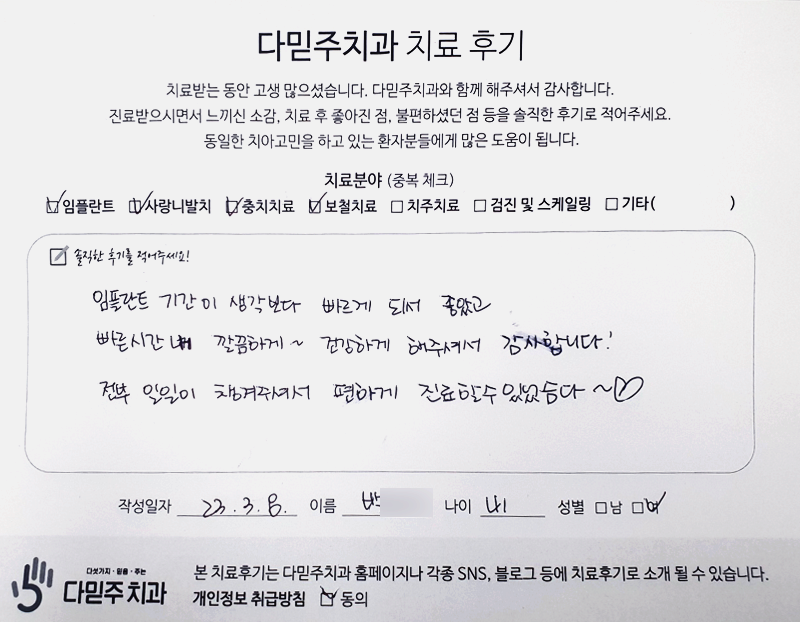 다믿주치과 치료 후기
치료받는 동안 고생 많으셨습니다. 다믿주치과와 함께 해주셔서 감사합니다.
진료받으시면서 느끼신 소감, 치료 후 좋아진 점, 불편하셨던 점 등을 솔직한 후기로 적어주세요.
동일한 치아고민을 하고 있는 환자분들에게 많은 도움이 됩니다.
치료분야 (중복 체크)
☑임플란트 ☑사랑니발치 ☑충치치료 ☑보철치료 □치주치료 □검진 및 스케일링 □기타( )
솔직한 후기를 적어주세요!
임플란트 기간이 생각보다 빠르게 되서 좋았고
빠른시간 내 깔끔하게~ 건강하게 해주셔서 감사합니다!
전부 일일이 챙겨주셔서 편하게 진료할수있었습니다 ~♡
작성일자 23.3.8. 이름 박 나이 성별 □남 ☑여
다섯가지·믿음·주는
다믿주치과
본 치료후기는 다믿주치과 홈페이지나 각종 SNS, 블로그 등에 치료후기로 소개 될 수 있습니다.
개인정보 취급방침 ☑동의